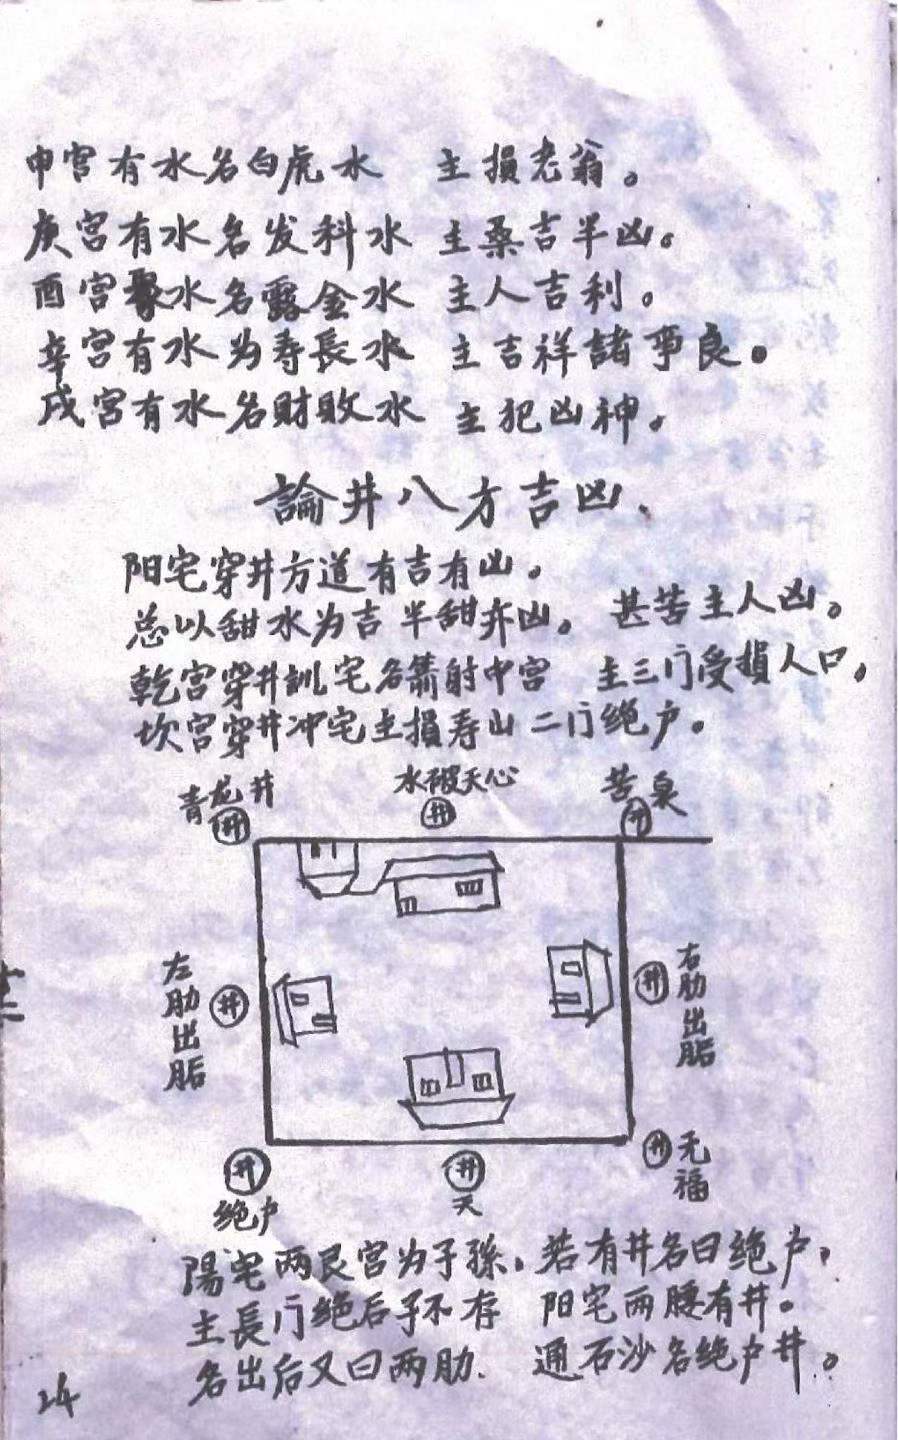 申宫有水名白虎水 主損老翁。
庚宫有水名发科水 主桑吉半凶。
酉宫聚水名露金水 主人吉利。
辛宫有水为寿長水 主吉祥諸事良。
戌宫有水名财败水 主犯凶神。
論井八方吉凶、
阳宅穿井方道有吉有凶。
总以甜水为吉半甜亦凶。甚苦主人凶。
乾宫穿井訓宅名箭射中宫 主三门受損人口。
坎宫穿井冲宅主損寿山二门绝户。
青龙井 水破天心 苦泉
井 井 井
左肋出 井
井 右肋出
井 井 井 无福
绝户 天
陽宅两艮宫为子孫,若有井名曰绝户,
主長门绝后子不存 阳宅两腰有井。
名出后又曰两肋. 通石沙名绝户井。
24